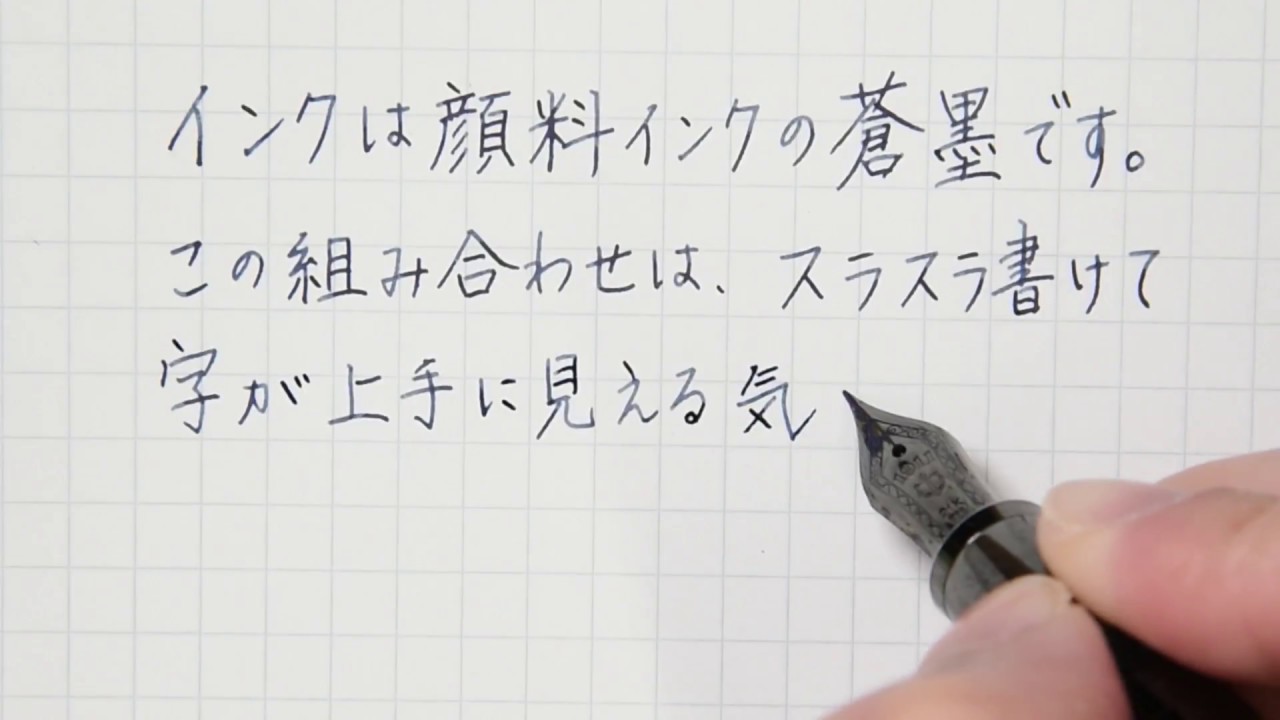 インクは顔料インクの蒼墨です。
この組み合わせは、スラスラ書けて
字が上手に見える気